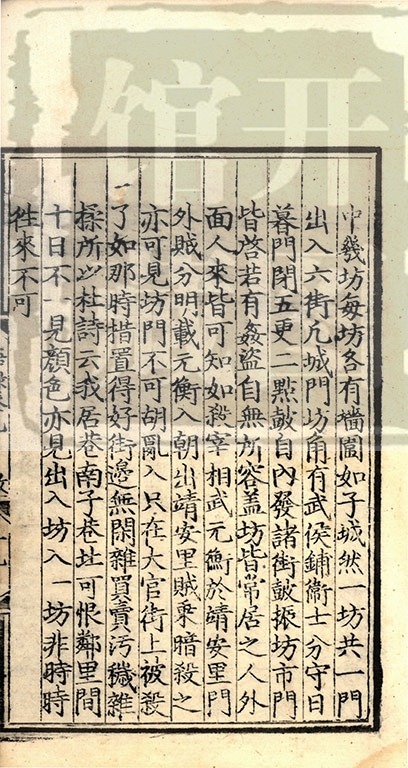 中幾坊每坊各有墻圍如子城然一坊共一門
出入六街凡城門坊角有武侯鋪衞士分守日
暮門閉五更二點鼓自內發諸街鼓振坊市門
皆啓若有姦盜自無所容蓋坊皆常居之人外
面人來皆可知如殺宰相武元衡於靖安里門
外賊分明載元衡入朝出靖安里賊乘暗殺之
亦可見坊門不可胡亂入只在大官街上被殺
了如那時措置得好街邊無閑雜買賣汚穢雜
揉所以杜詩云我居巷南子巷北可恨鄰里間
十日不一見顔色亦見出入坊入一坊非時時
徃來不可
开馆